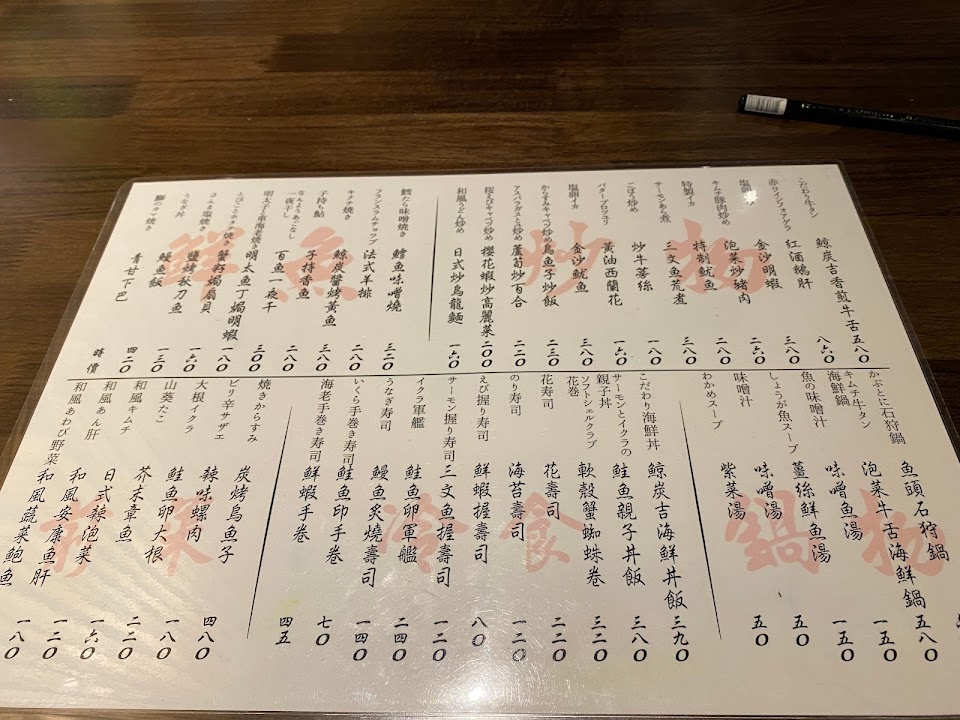 炒物
こだわり牛タン 鯨炭吉香煎牛舌 五八〇
赤ワインフォアグラ 紅酒鵝肝 八六〇
金沙明蝦 三八〇
キムチ豚肉炒め 泡菜炒豬肉 二六〇
特製イカ 特制魷魚 二八〇
サーモンあら煮 三文魚荒煮 三八〇
ごぼう炒め 炒牛蒡絲 一八〇
バターブロツコリ 黃油西蘭花 一六〇
塩卵イカ 金沙魷魚 三八〇
からすみキャベツ炒め 烏魚子炒飯 二三〇
蘆筍炒百合 二二〇
桜えびキャベツ炒め 櫻花蝦炒高麗菜 二〇〇
和風うどん炒め 日式炒烏龍麵 一六〇
鮮魚
鱈たら味噌焼き 鱈魚味噌燒 三二〇
フランスラムチョップ 法式羊排 二八〇
キダチ焼き 鯨炭醬烤黃魚 三八〇
子持ち鮎 子持香魚 二八〇
一夜干し 百魚一夜干 三〇〇
明太子と車海老焼き 明太魚丁焗明蝦 一八〇
とびことホタテ焼き 蟹籽焗扇貝 一六〇
さんま塩焼き 鹽烤秋刀魚 一三〇
うなぎ丼 鰻魚飯 四二〇
鰤のカマ焼き 青甘下巴 時價
鍋物
かぶとに石狩鍋 魚頭石狩鍋 五八〇
キムチ牛タン海鮮鍋 泡菜牛舌海鮮鍋 一五〇
魚の味噌汁 味噌魚湯 一五〇
しょうが魚スープ 薑絲鮮魚湯 五〇
味噌汁 味噌湯 五〇
わかめスープ 紫菜湯
冷食
こだわり海鮮丼 鯨炭吉海鮮丼飯 三九〇
サーモンとイクラの親子丼 鮭魚親子丼飯 三八〇
ソフトシェルクラブ花巻 軟殼蟹蜘蛛卷 三二〇
花寿司 花壽司 二二〇
のり寿司 海苔壽司 一二〇
えび握り寿司 鮮蝦握壽司 八〇
サーモン握り寿司 三文魚握壽司 一二〇
イクラ軍艦 鮭魚卵軍艦 二四〇
うなぎ寿司 鰻魚炙燒壽司 一四〇
いくら手巻き寿司 鮭魚印手卷 七〇
海老手巻き寿司 鮮蝦手卷 四五
焼きからすみ 炭烤烏魚子 四八〇
ピリ辛サザエ 辣味螺肉 一八〇
大根イクラ 鮭魚卵大根 二二〇
山葵たこ 芥末章魚 一六〇
和風キムチ 日式辣泡菜 一二〇
和風あん肝 和風安康魚肝 一八〇
和風あわび野菜 和風蔬菜鮑魚